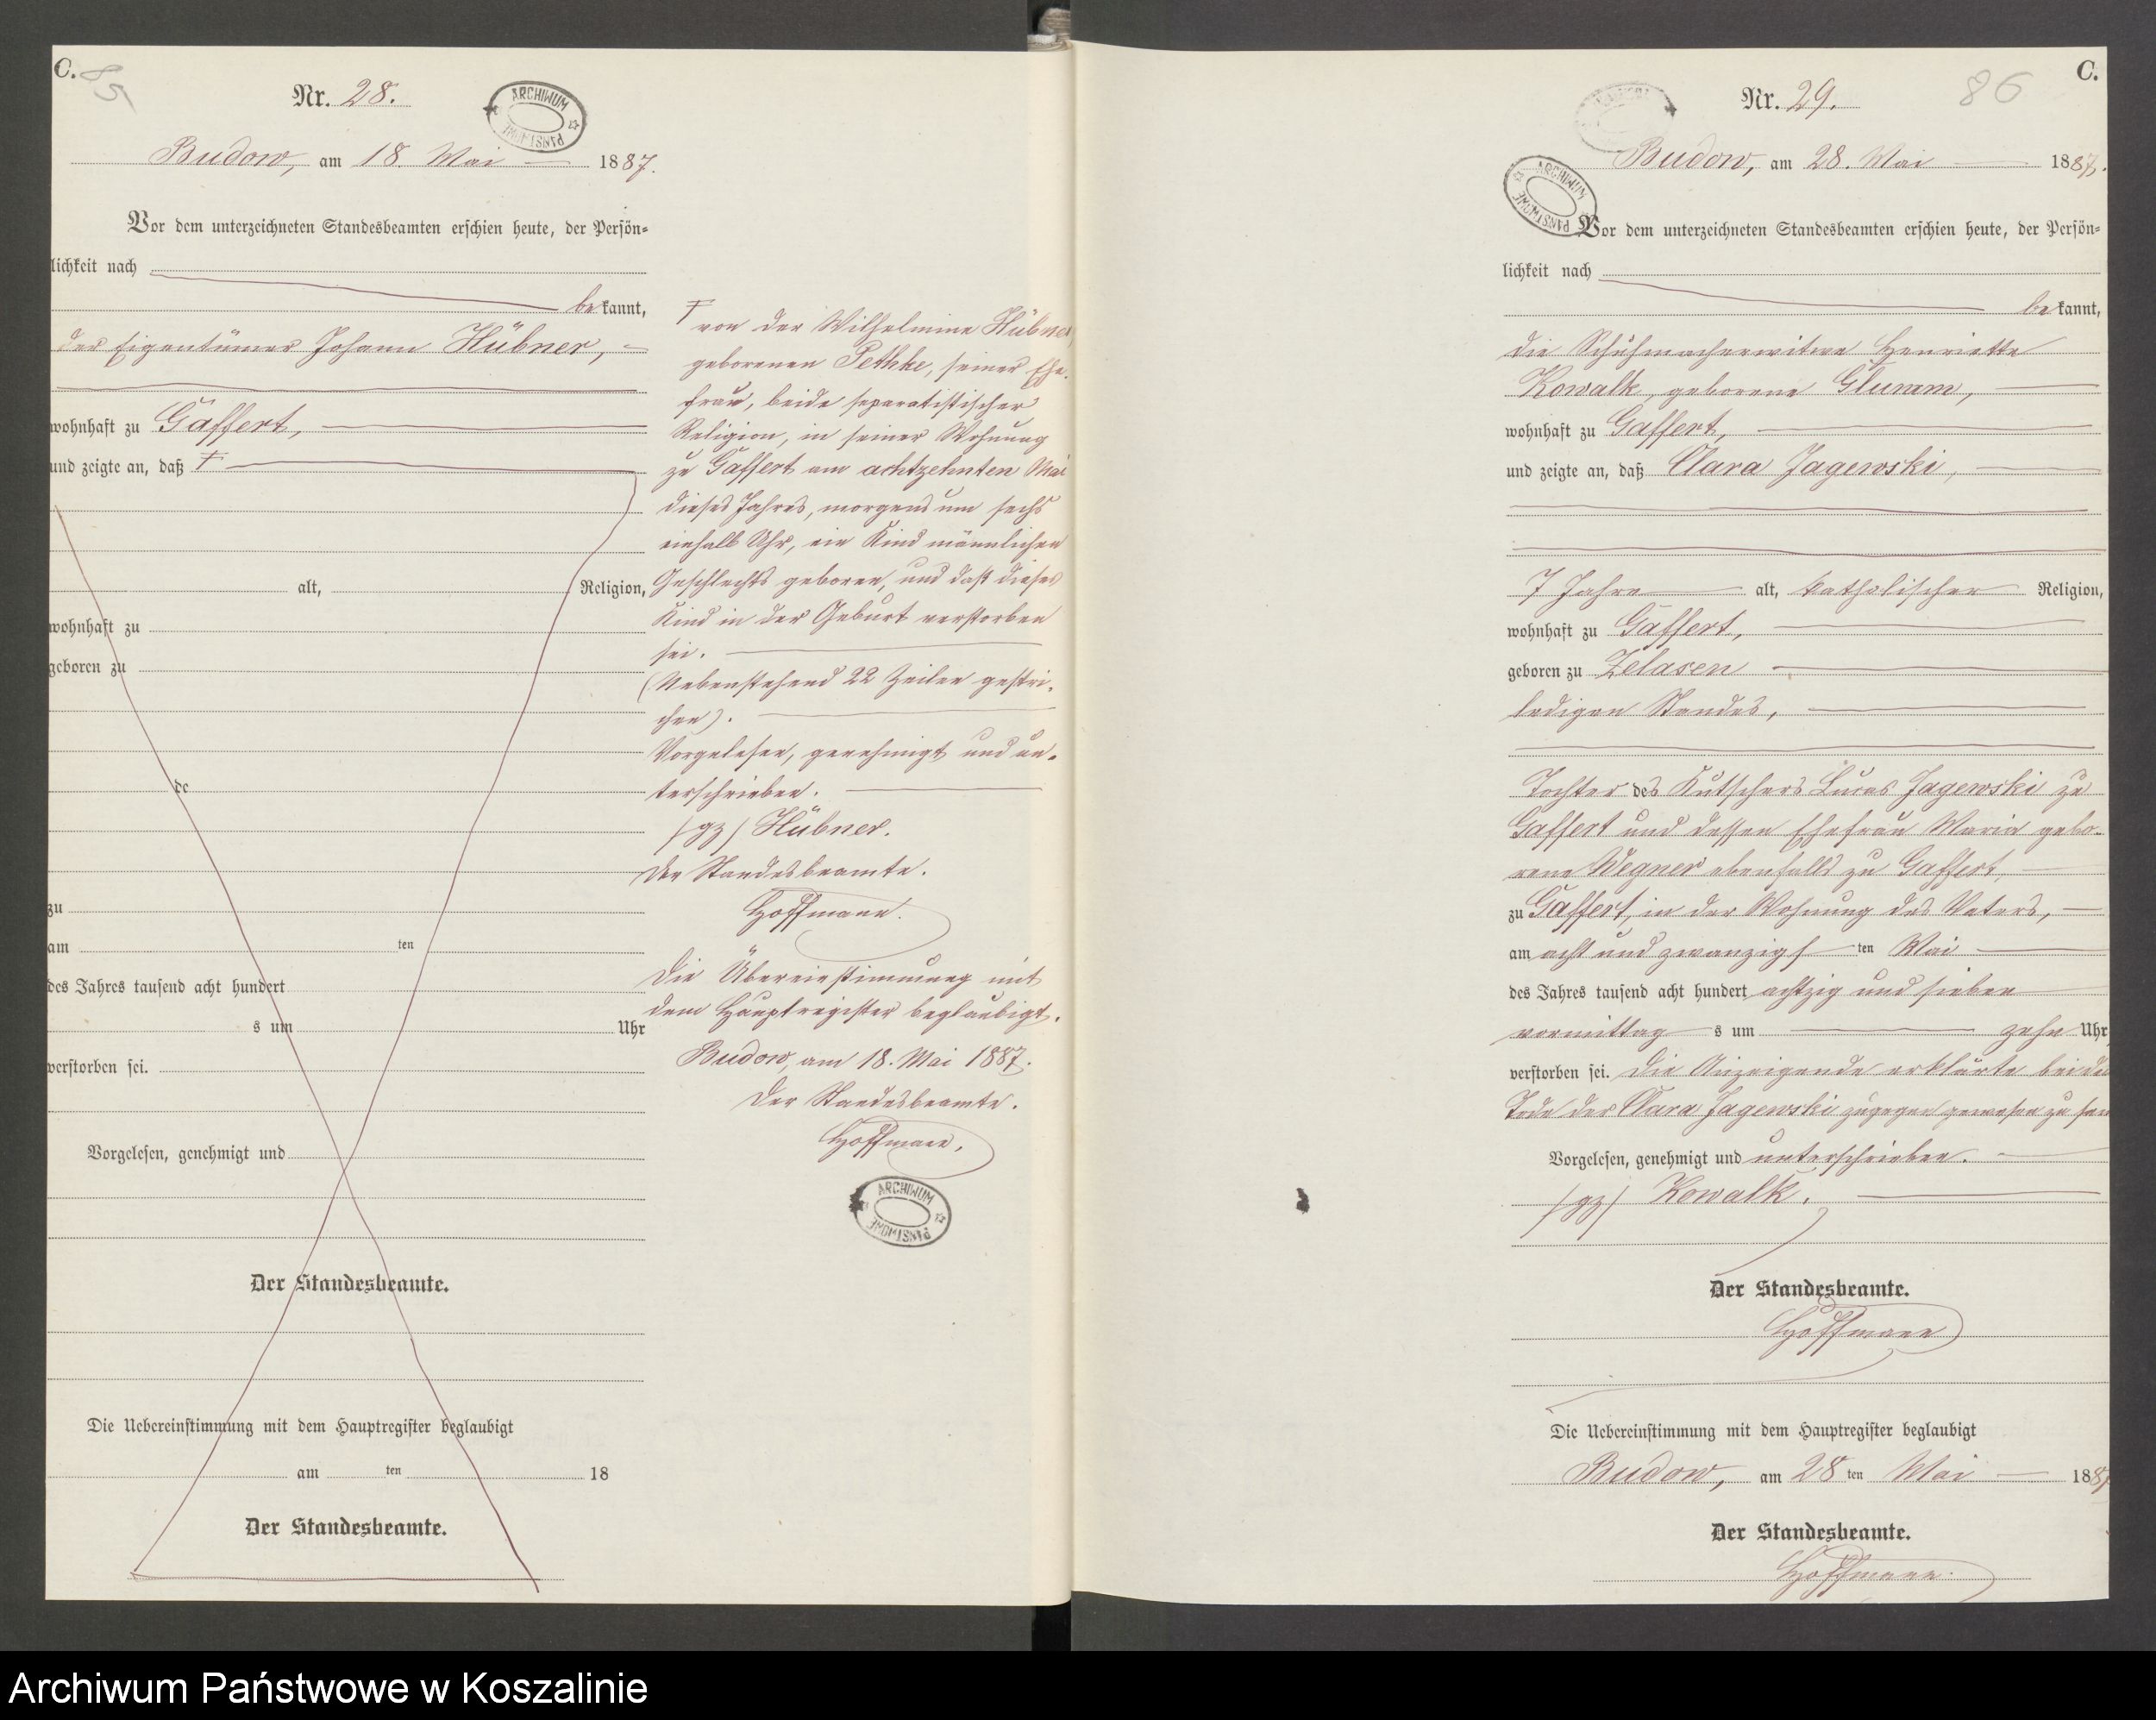 C.
85
Nr. 28.
ARCHIWUM PAŃSTWOWE
Budow, am 18. Mai 1887.
Vor dem unterzeichneten Standesbeamten erschien heute, der Persön-
lichkeit nach
bekannt,
der Eigentümer Johann Hübner,
wohnhaft zu Gaffert,
und zeigte an, daß F
alt, Religion,
wohnhaft zu
geboren zu
de
zu
am ten
des Jahres tausend acht hundert
s um Uhr
verstorben sei.
Vorgelesen, genehmigt und
Der Standesbeamte.
Die Uebereinstimmung mit dem Hauptregister beglaubigt
am ten 18
Der Standesbeamte.
F von der Wilhelmine Hübner,
geborenen Pethke, seiner Ehe-
frau, beide separatistischer
Religion, in seiner Wohnung
zu Gaffert am achtzehnten Mai
dieses Jahres, morgens um sechs
einhalb Uhr, ein Kind männlichen
Geschlechts geboren, und daß dieses
Kind in der Geburt verstorben
sei.
(Nebenstehend 22 Zeilen gestri-
chen).
Vorgelesen, genehmigt und un-
terschrieben.
/gz/ Hübner.
Der Standesbeamte.
Hoffmann.
Die Übereinstimmung mit
dem Hauptregister beglaubigt.
Budow, am 18. Mai 1887.
Der Standesbeamte.
Hoffmann.
ARCHIWUM PAŃSTWOWE
C.
86
Nr. 29.
Budow, am 28. Mai 1887.
ARCHIWUM PAŃSTWOWE
Vor dem unterzeichneten Standesbeamten erschien heute, der Persön-
lichkeit nach
bekannt,
die Schuhmacherwitwe Henriette
Kowalk, geborene Glumm,
wohnhaft zu Gaffert,
und zeigte an, daß Clara Jagewski,
7 Jahre alt, katholischer Religion,
wohnhaft zu Gaffert,
geboren zu Zelasen
ledigen Standes,
Tochter des Kutschers Lucas Jagewski zu
Gaffert und dessen Ehefrau Maria gebo-
rene Wegner ebenfalls zu Gaffert,
zu Gaffert, in der Wohnung des Vaters,
am acht und zwanzigsten Mai
des Jahres tausend acht hundert achtzig und sieben
vormittags um zehn Uhr
verstorben sei. Die Anzeigende erklärte bei dem
Tode der Clara Jagewski zugegen gewesen zu sein
Vorgelesen, genehmigt und unterschrieben.
/gz/ Kowalk.
Der Standesbeamte.
Hoffmann
Die Uebereinstimmung mit dem Hauptregister beglaubigt
Budow, am 28 ten Mai 1887
Der Standesbeamte.
Hoffmann.
Archiwum Państwowe w Koszalinie